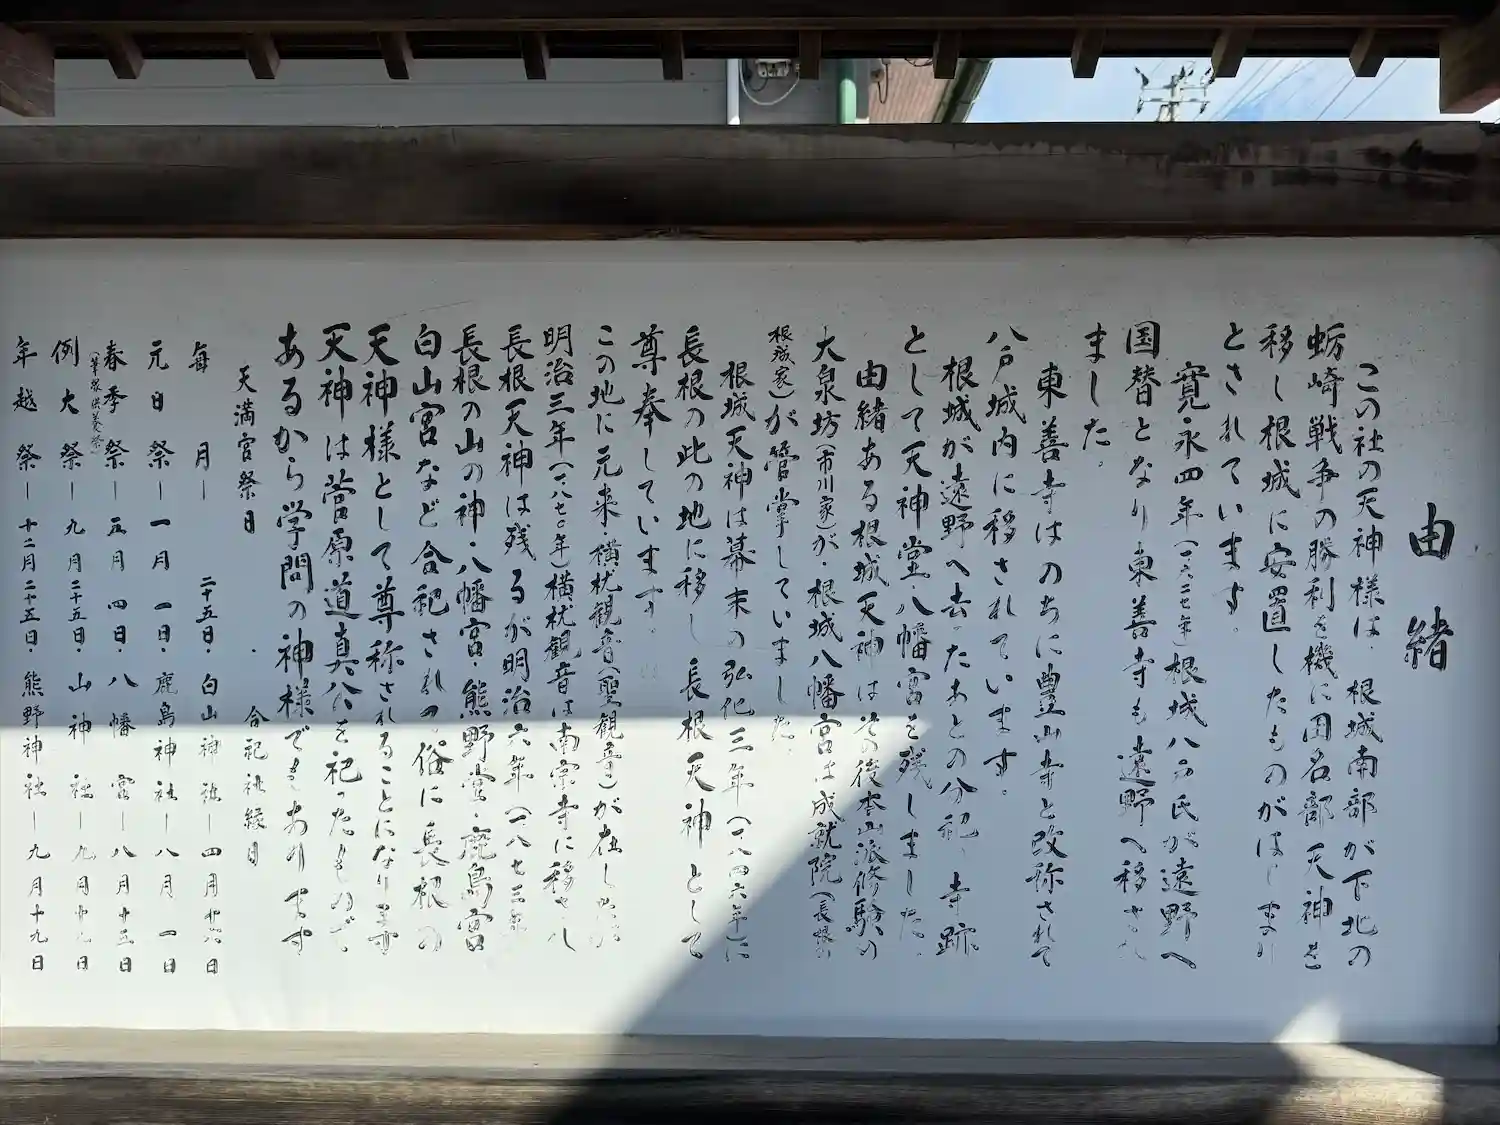 由緒
この社の天神様は、根城南部が下北の
蛎崎戦争の勝利を機に田名部天神を
移し根城に安置したものがはじまり
とされています。
寛永四年(一六二七年)根城八戸氏が遠野へ
国替となり東善寺も遠野へ移され
ました。
東善寺はのちに豊山寺と改称されて
八戸城内に移されています。
根城が遠野へ去ったあとの分祀、寺跡
として天神堂八幡宮を残しました。
由緒ある根城天神はその後本山派修験の
大泉坊(市川家)が、根城八幡宮は成就院(長根の
根城家)が管掌していました。
根城天神は幕末の弘化三年(一八四六年)に
長根の此の地に移し長根天神として
尊奉しています。
この地に元来横枕観音(聖観音)が在しが
明治三年(一八七〇年)横枕観音は南宗寺に移され
長根天神は残るが明治六年(一八七三年
長根の山の神・八幡宮・熊野堂・鹿島宮
白山宮など合祀されの。俗に長根の
天神様として尊称されることになります
天神は菅原道真公を祀ったものが
あるから学問の神様でもあります
天満宮祭日 ・ 合祀社縁日
毎月―二十五日・白山神社―四月廿六日
元日祭―一月一日・鹿島神社―八月一日
春季祭―五月四日・八幡宮―八月十五日
(筆塚供養祭)
例大祭―九月二十五日・山神社―九月廿九日
年越祭―十二月二十五日・熊野神社―九月十九日